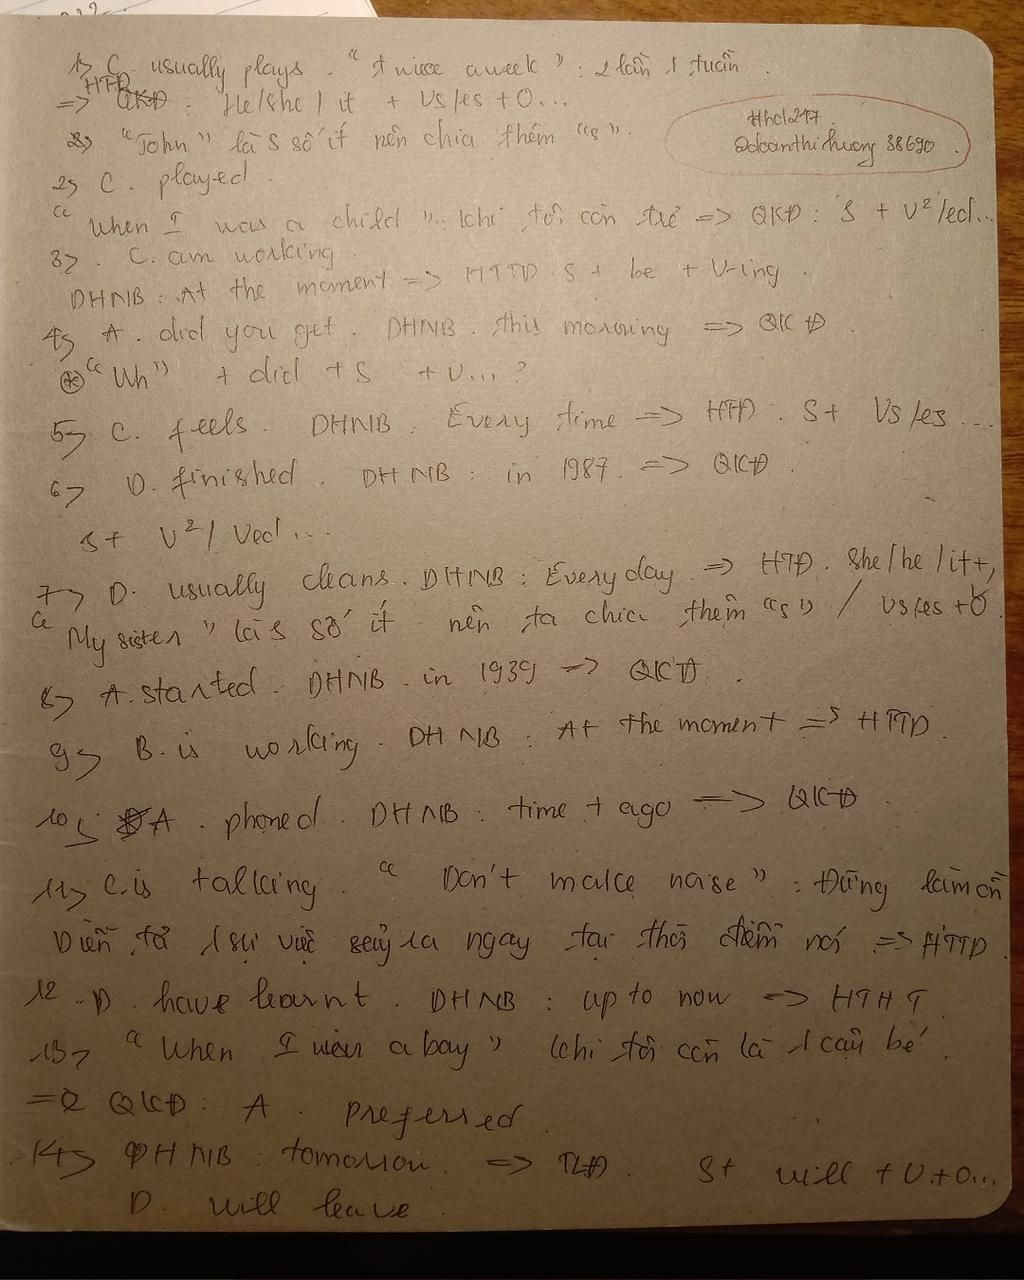 1> C. usually plays. "twice a week" : 2 lần 1 tuần.
=> HTĐ : He/she / it + Vs/es + O...
"John" là S số ít nên chia thêm "s".
Hhcl247.
@doanthihuong 38690.
2> C. played.
"When I was a child" : khi tôi còn trẻ => QKĐ : S + V2/ed...
3>. C. am working.
DHNB : At the moment => HTTD. S + be + V-ing.
4> A. did you get. DHNB. this morning => QKĐ.
* "Wh" + did + S + V...?
5> C. feels. DHNB. Every time => HTĐ. S + Vs/es...
6> D. finished. DHNB : in 1987. => QKĐ.
S + V2/ Ved...
7> D. usually cleans. DHNB : Every day => HTĐ. She/he/it +,
"My sister" là S số ít nên ta chia thêm "s" / Vs/es + O
8> A. started. DHNB. in 1939 => QKĐ.
9> B. is working. DHNB : At the moment => HTTD.
10> A. phoned. DHNB : time + ago => QKĐ.
11> C. is talking. "Don't make noise" : Đừng làm ồn
Diễn tả 1 sự việc sảy ra ngay tại thời điểm nói => HTTD.
12. D. have learnt. DHNB : up to now => HTHT
13> "When I was a boy" khi tôi còn là 1 cậu bé.
=> QKĐ : A. preferred.
14> DHNB : tomorrow. => TLĐ. S + will + V + O...
D. will leave.